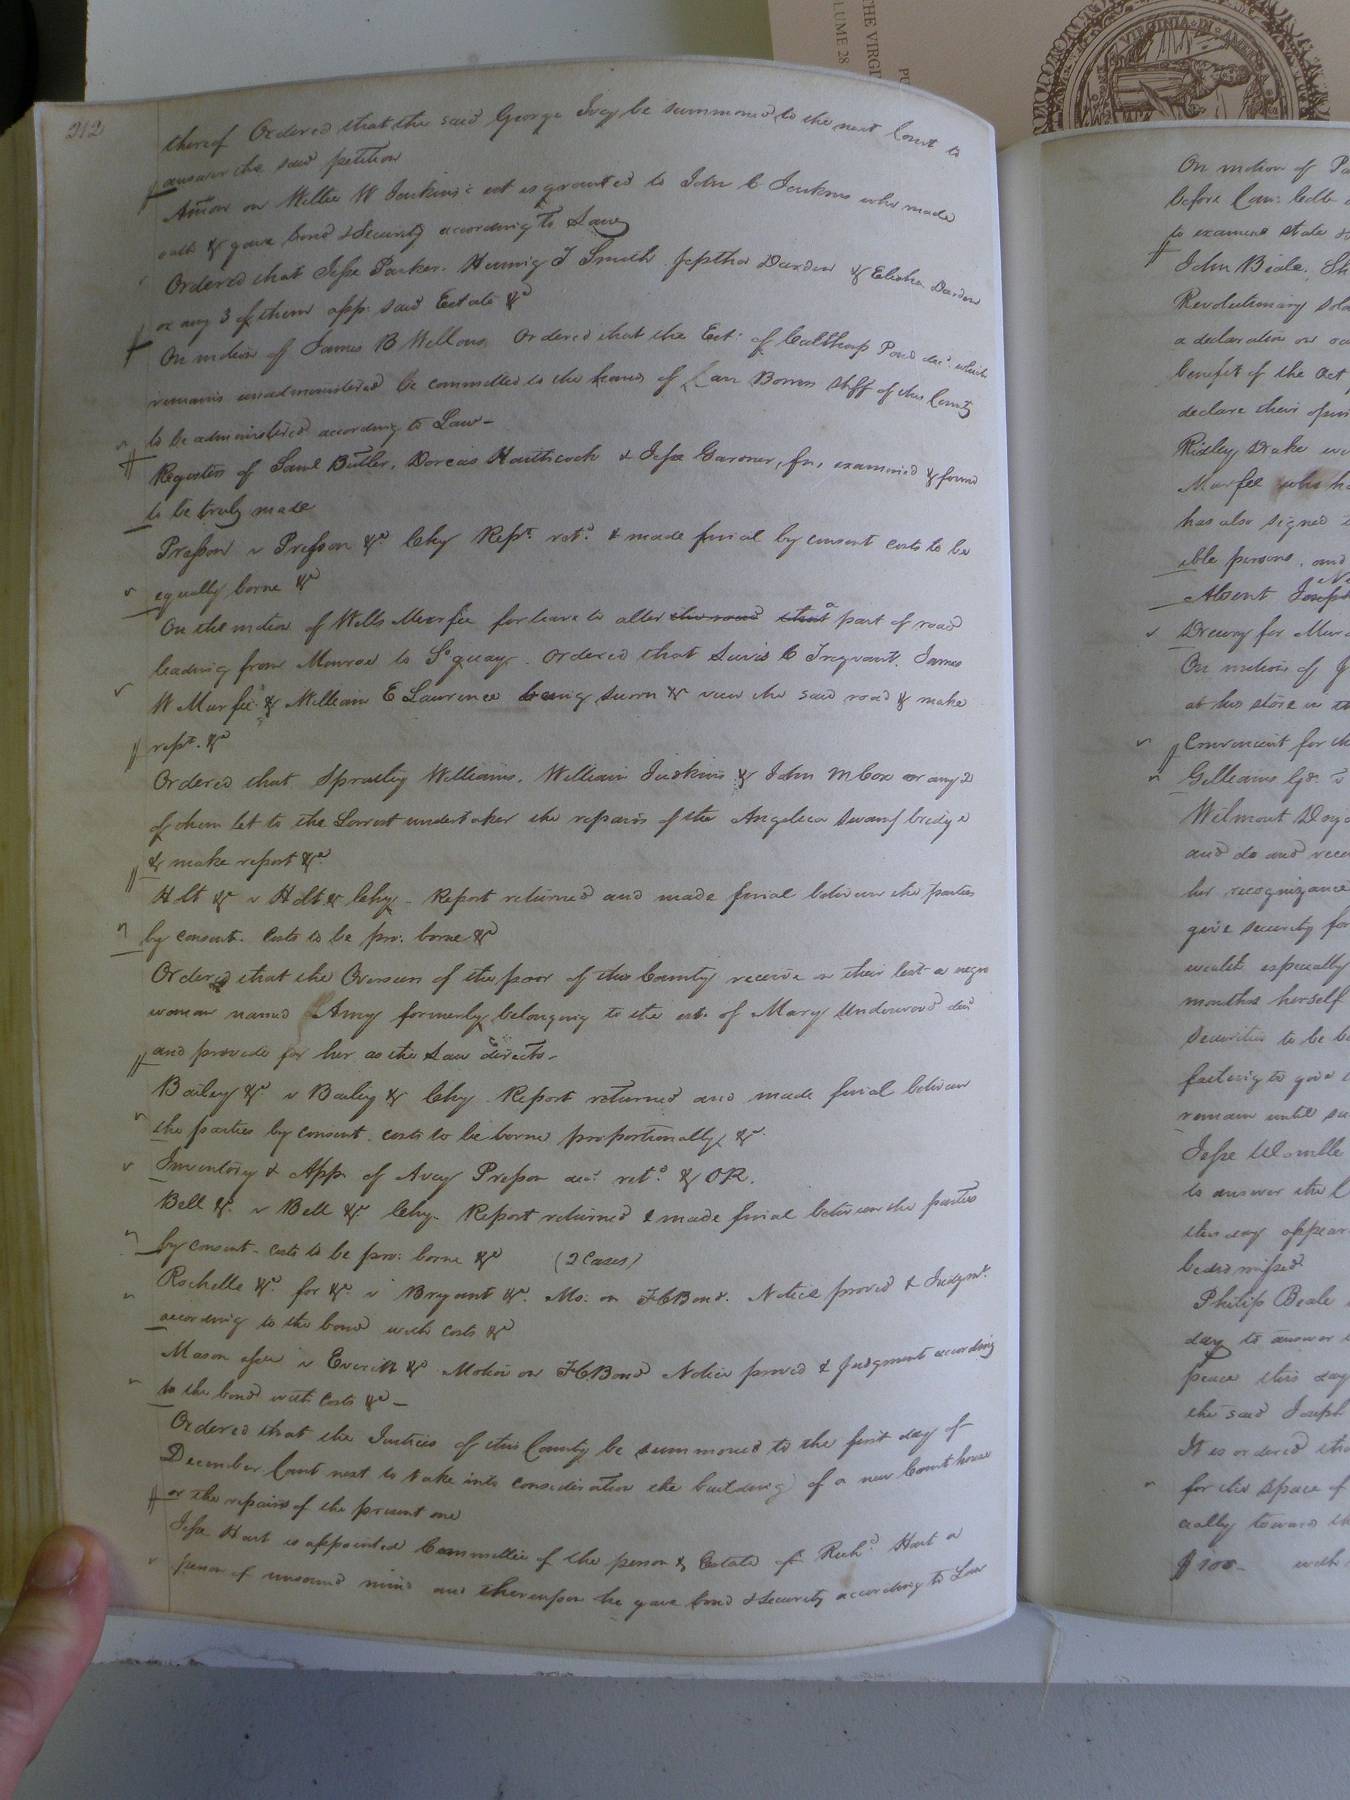 212
thereof Ordered that the said George Ivey be summoned to the next Court to
answer the said petition
Admon on Willie W Jenkins's est is granted to John C Jenkins who made
oath & gave bond & Security according to Law
Ordered that Jesse Parker. Hennig T Smith Jeptha Darden & Elisha Darden
or any 3 of them app: said Estate &c
On motion of James B Mellons Ordered that the Est: of Calthorp Pond decd. which
remains unadministered be committed to the hands of Carr Bowers Shff of this County
to be administered according to Law -
Registers of Saml Butler, Dorcas Haithcock & Jesse Garner, fn, examined & found
to be truly made
Presson v Presson &c Chy Rept. retd. & made final by consent costs to be
equally borne &c
On the motion of Wells Murfee for leave to alter the road that a part of road
leading from Monroe to So quay. Ordered that Lewis C Trezvant. James
W Murfee & William E Lawrence being sworn &c view the said road & make
rept. &c
Ordered that Spratley Williams, William Judkins & John M Cox or any 2
of them let to the Lowest undertaker the repairs of the Angelica Swamp bridge
& make report &c
Holt &c v Holt &c Chy - Report returned and made final between the parties
by consent. Costs to be pro: borne &c
Ordered that the Overseers of the poor of this County receive on their list a negro
woman named Amy formerly belonging to the est. of Mary Underwood decd
and provide for her as the Law directs -
Bailey &c v Bailey & Chy Report returned and made final between
the parties by consent. costs to be borne proportionally &c
Inventory & App. of Avey Presson decd retd. & OR.
Bell &c v Bell &c Chy. Report returned & made final between the parties
by consent - costs to be pro: borne &c (2 Cases)
Rochelle &c for &c v Bryant &c. Mo: on FCBond. Notice proved & Judgmt.
according to the bond with costs &c
Mason v Everitt &c Motion on FCBond Notice proved & Judgment according
to the bond with costs &c -
Ordered that the Justices of this County be summoned to the first day of
December Court next to take into consideration the building of a new Court house
or the repairs of the present one
Jesse Hart is appointed Committee of the person & Estate of Richd. Hart a
person of unsound mind and thereupon he gave bond & Security according to Law
THE VIRGI
LUME 28
PU
VIRGINIA
On motion of
before
to examine state
John Beale.
Revolutionary
a declaration on
benefit of the Act
declare their
Ridley Drake
Murfee who
has also signed
ible persons, and
Absent
Drewry for
On motion of
at his store in
Convenient for
Gilliams
Wilmont
and do and
her recognizance
give security for
wealth especially
months herself
Securities to be
failing to give
remain until
Jesse Womble
to answer the
this day
be dismissed.
Philip Beale
day to answer
peace this day
the said Joseph
It is ordered
for the space of
cially toward
$100 - with